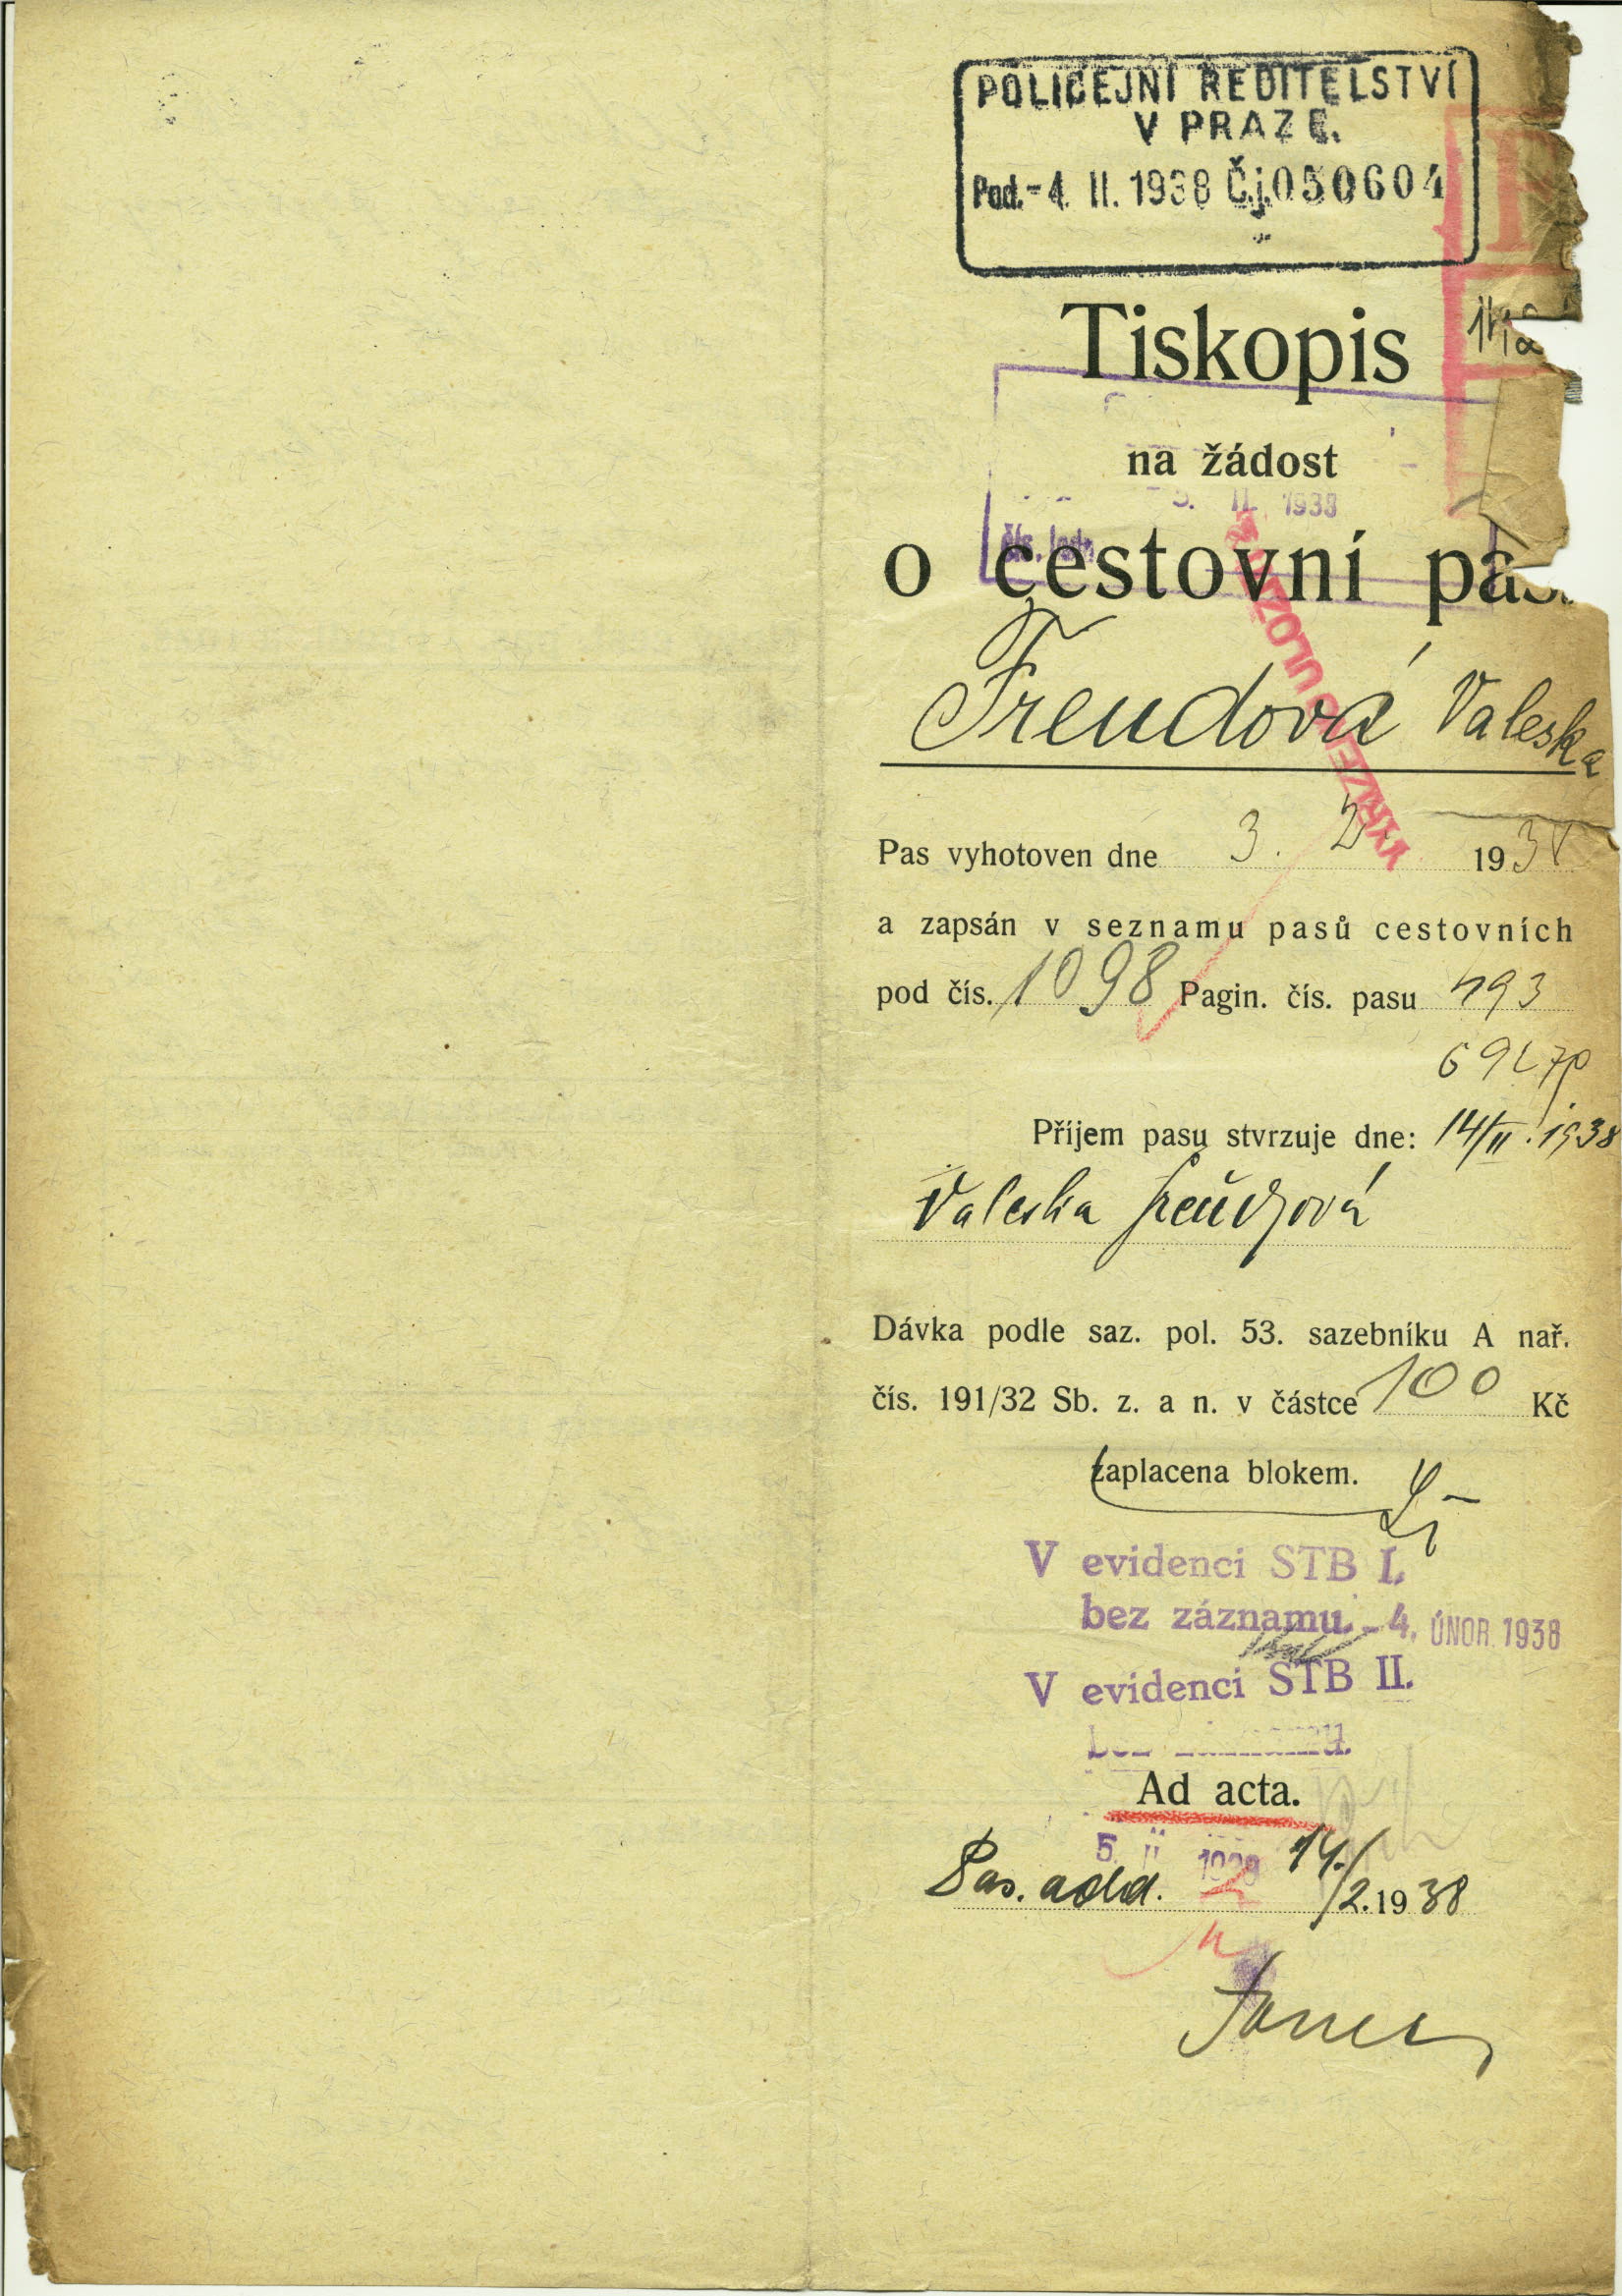 POLICEJNÍ ŘEDITELSTVÍ
V PRAZE.
Pod.-4. II. 1938 Č.j.050604
Tiskopis
na žádost
5. II. 1938
čís. jedn.
o cestovní pas.
Freudová Valeska
Pas vyhotoven dne 3. 2. 1938
a zapsán v seznamu pasů cestovních
pod čís. 1098 Pagin. čís. pasu 493
Příjem pasu stvrzuje dne: 14/II. 1938
Valeska Freudová
Dávka podle saz. pol. 53. sazebníku A nař.
čís. 191/32 Sb. z. a n. v částce 100 Kč
zaplacena blokem.
V evidenci STB I.
bez záznamu. -4. ÚNOR 1938
V evidenci STB II.
bez záznamu.
Ad acta.
5. II 1938
Pas. odd. 14./2.1938